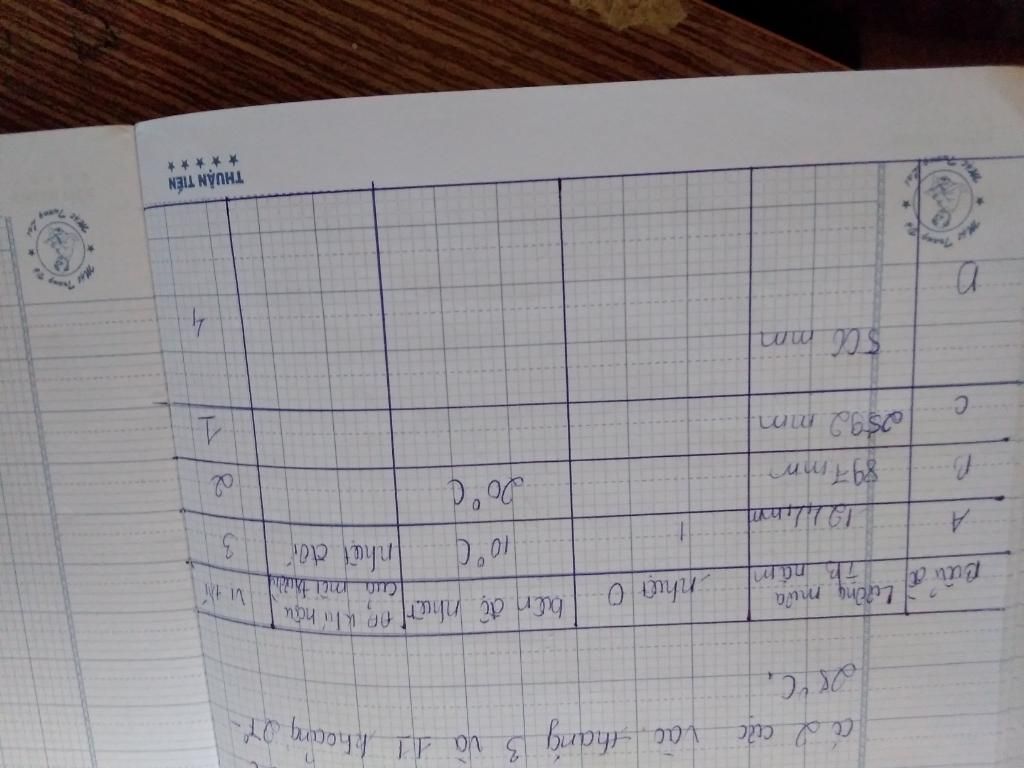 có 2 cực vào tháng 3 và 11 khoảng 27-
28°C.
Biểu đồ
Lượng mưa
TB năm
nhiệt 0
biên độ nhiệt
đ² khí hậu
của môi trường
vị trí
A
1244mm
1
10°C
nhiệt đới
3
B
897mm
20°C
2
C
2592 mm
1
D
506 mm
4
THUẬN TIẾN